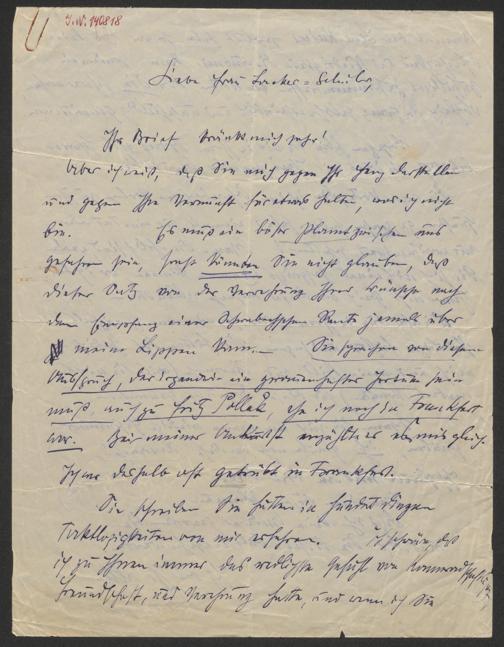 I.N. 140818
Liebe Frau Lasker-Schüler,
Ihr Brief kränkt mich sehr!
Aber ich weiß, daß Sie mich gegen Ihr Herz darstellen
und gegen Ihre Vernunft für etwas halten, was ich nicht
bin. Es muß ein böser Planet zwischen uns
gefahren sein, sonst könnten Sie nicht glauben, daß
dieser Satz von der Verehrung Ihrer Wünsche nach
dem Empfang einer Rente jemals über
meine Lippen kam. Sie sprachen von diesem
Ausspruch, der irgendwie ein grauenhafter Irrtum sein
muß auch zu Fritz Pollak, ehe ich noch in Frankfurt
war. Bei meiner Ankunft erzählte er es mir gleich.
Ich war deshalb oft betrübt in Frankfurt.
Sie schreiben Sie hätten in hundert Dingen
Taktlosigkeiten von mir erfahren. Ich schwöre, daß
ich zu Ihnen immer das redlichste Gefühl von
Freundschaft, und Verehrung hatte, und wenn ich Sie